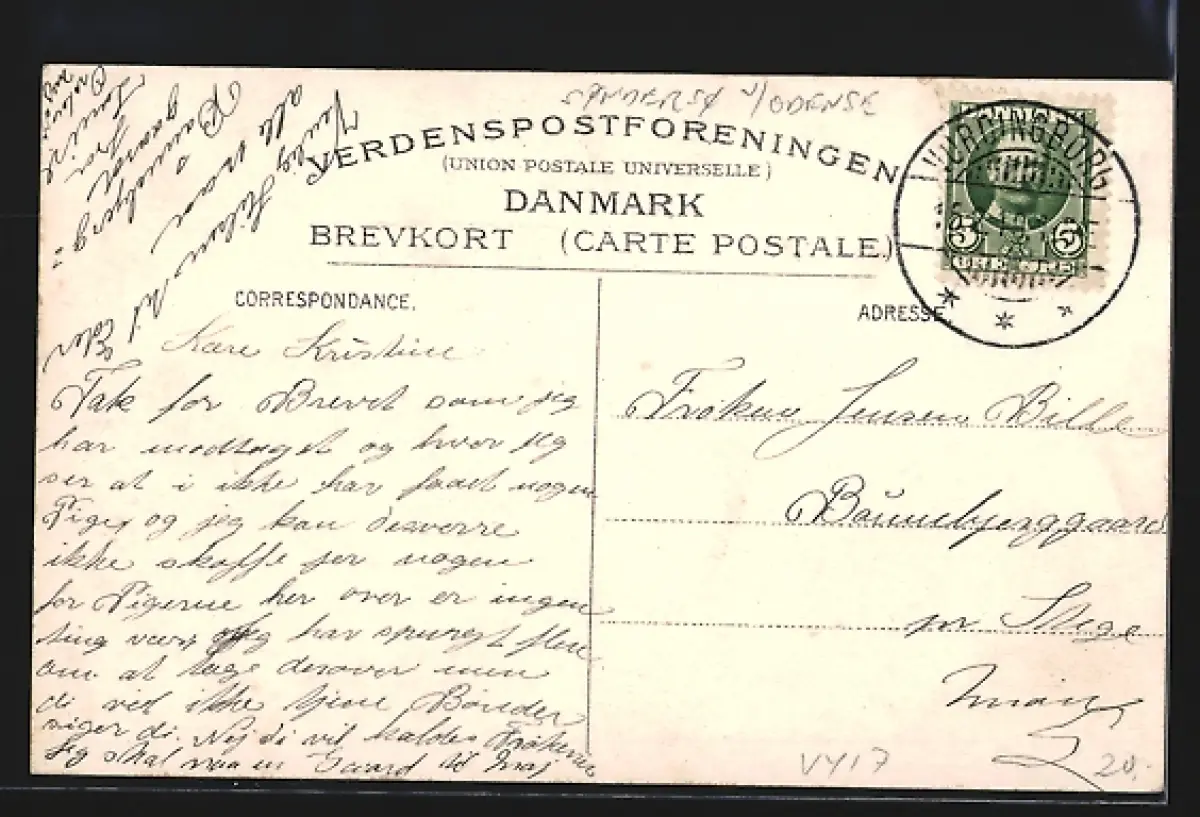 SØNDERSØ V/ODENSE
VERDENSPOSTFORENINGEN
(UNION POSTALE UNIVERSELLE)
DANMARK
BREVKORT (CARTE POSTALE.)
VORDINGBORG
5 5
CORRESPONDANCE.
Kære Kristine
Tak for Brevet som jeg
har modtaget og hvor jeg
ser at i ikke har faaet nogen
Pige og jeg kan desverre
ikke skaffe jer nogen
for Pigerne her over er ingen
ting værd jeg har spurgt flere
om at tage derover men
di vil ikke tjene Bønder
siger di. Nej di vil kaldes Frøkener
Jeg skal paa en Gaard til Maj
Venlig Hilsen til Eder
alle
gaard fra
ADRESSE.
Frøken Jensen Bille
Bønnebjerggaard
pr Stege
Møen
VY17
20,-